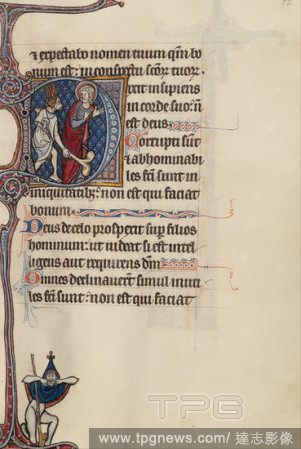 & expectabo nomen tuum qm̄ bo
num est: in conspectu scōꝝ tuoꝝ.
Dixit insipiens
in corde suo: nō
est deus
Corrupti sūt
& abhominabi
les fcī sunt in
iniquitatibȝ: non est qui faciat
bonum
Deus de celo prospexit sup̄ filios
hominum: ut uideat si est intel
ligens aut requirens dm̄
Omnes declinauerūt simul inuti
les fcī sunt: non est qui faciat
TPG
www.tpgnews.com / 達志影像